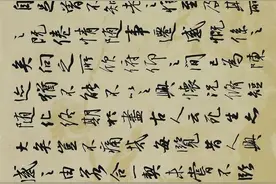 自足曾不知老之將至及其所
之既倦情隨事遷感慨係之
矣向之所欣俛仰之間以為陳
迹猶不能不以之興懷況脩短
隨化終期於盡古人云死生亦
大矣豈不痛哉每覽昔人興
感之由若合一契未嘗不臨